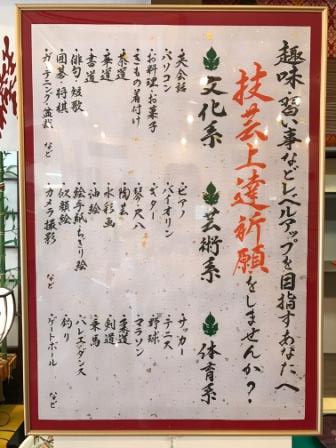 趣味・習い事などレベルアップを目指すあなたへ
技芸上達祈願をしませんか？
文化系
・英会話
・パソコン
・お料理・お菓子
・きもの着付け
・茶道
・華道
・書道
・俳句・短歌
・囲碁・将棋
・ガーデニング・盆栽
など
芸術系
・ピアノ
・バイオリン
・ギター
・琴・尺八
・陶芸
・水彩画
・油絵
・絵手紙・ちぎり絵
・似顔絵
・カメラ撮影
など
体育系
・サッカー
・テニス
・野球
・マラソン
・柔道
・剣道
・乗馬
・バレエ・ダンス
・釣り
・ゲートボール
など